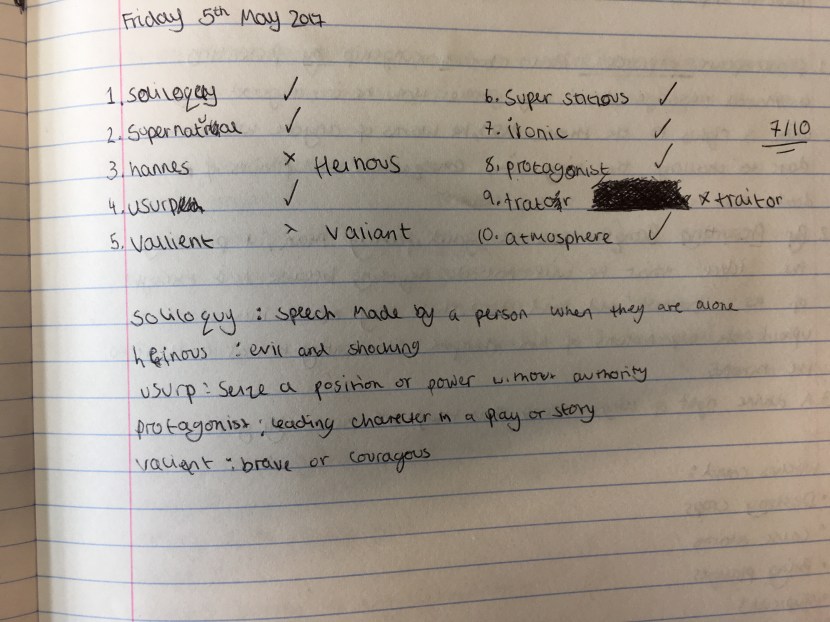 Friday 5th May 2017
1. soliloquy ✓
2. Supernatural ✓
3. hannes × Heinous
4. usurp ✓
5. vallient × valiant
6. Super stitious ✓
7. ironic ✓
8. protagonist ✓
9. trator × traitor
10. atmosphere ✓
7/10
soliloquy : speech made by a person when they are alone
heinous : evil and shocking
usurp : seize a position or power without authority
protagonist : leading charecter in a play or story
valient : brave or couragous